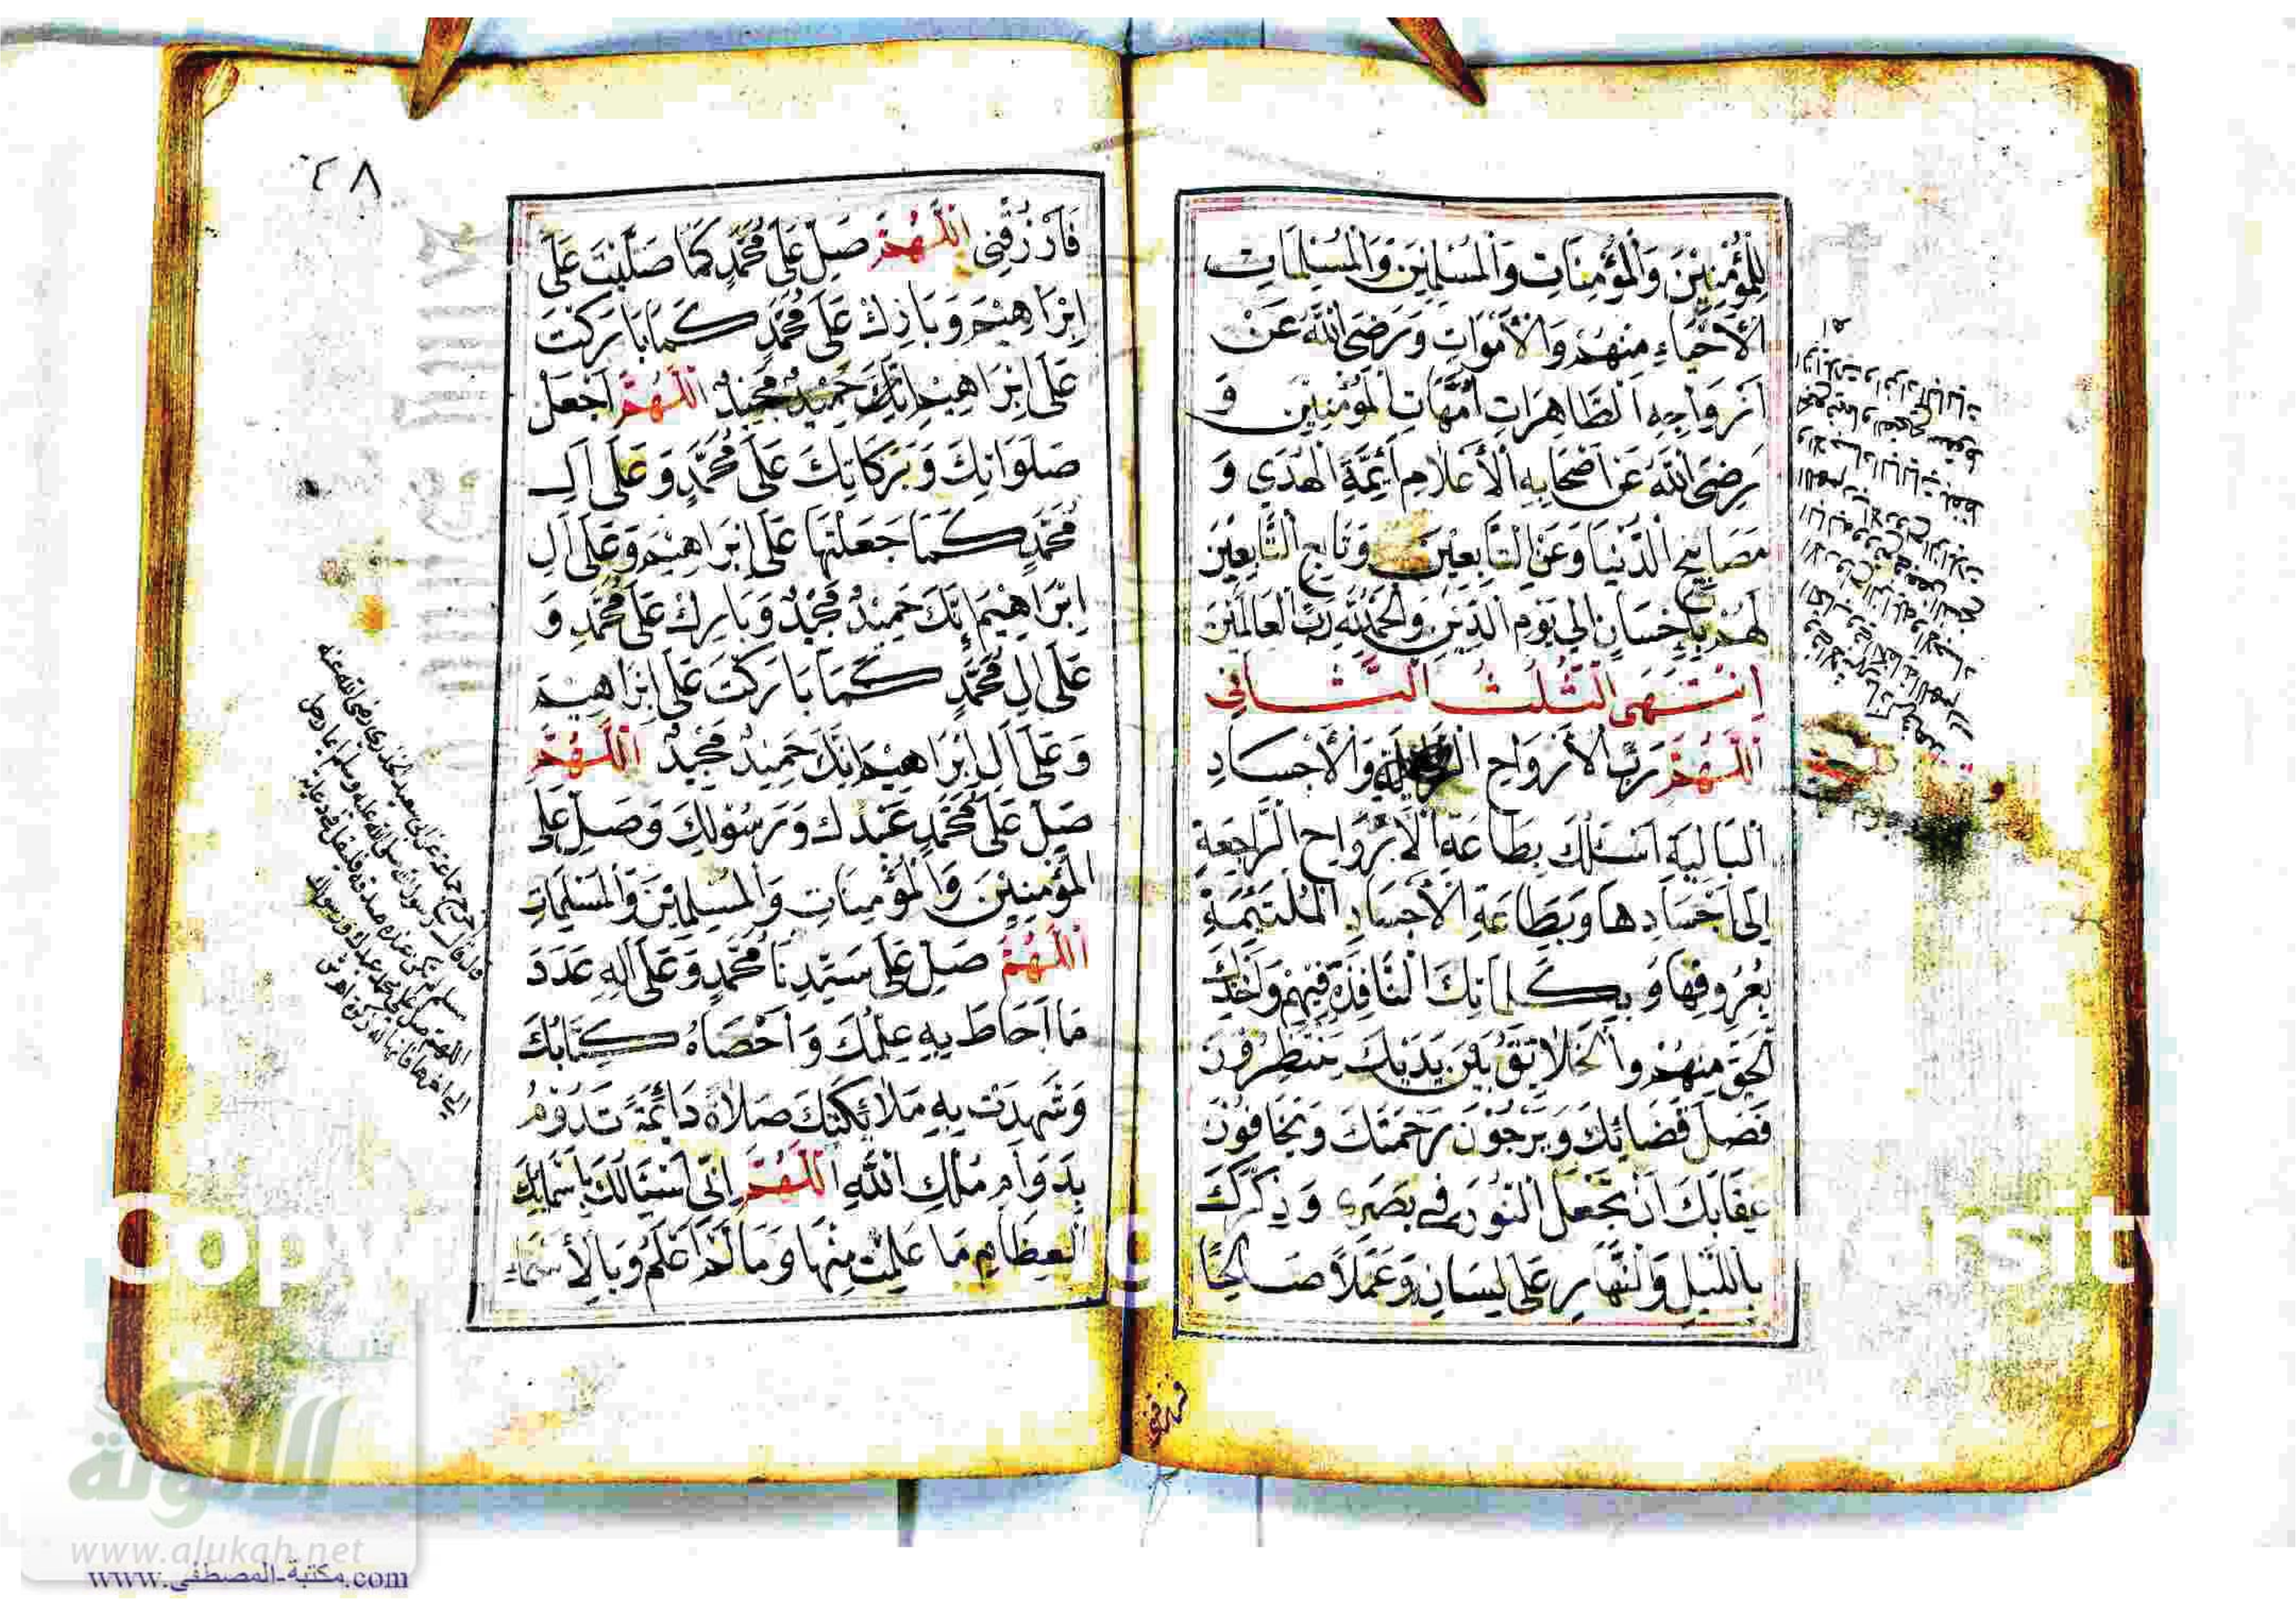 لِلْمُؤْمِنِيْنَ وَالْمُؤْمِنَاتِ وَالْمُسْلِمِيْنَ وَالْمُسْلِمَاتِ
الْأَحْيَاءِ مِنْهُمْ وَالْأَمْوَاتِ وَرَضِيَ اللهُ عَنْ
اَزْوَاجِهِ الطَّاهِرَاتِ اُمَّهَاتِ الْمُؤْمِنِيْنَ وَ
رَضِيَ اللهُ عَنْ اَصْحَابِهِ الْأَعْلَامِ اَئِمَّةِ الْهُدَى وَ
مَصَابِيْحِ الدُّنْيَا وَعَنِ التَّابِعِيْنَ وَتَابِعِ التَّابِعِيْنَ
لَهُمْ بِاِحْسَانٍ اِلَى يَوْمِ الدِّيْنِ وَالْحَمْدُ لِلهِ رَبِّ الْعَالَمِيْنَ
اِنْتَهَى الثُّلُثُ الثَّانِي
اَللّٰهُمَّ رَبَّ الْأَرْوَاحِ وَالْأَجْسَادِ
الْبَالِيَةِ اَسْئَلُكَ بِطَاعَةِ الْأَرْوَاحِ الرَّاجِعَةِ
اِلَى اَجْسَادِهَا وَبِطَاعَةِ الْأَجْسَادِ الْمُلْتَئِمَةِ
بِعُرُوقِهَا وَبِكَلِمَاتِكَ النَّافِذَةِ فِيْهِمْ وَاَخْذِكَ
الْحَقَّ مِنْهُمْ وَالْخَلَائِقُ بَيْنَ يَدَيْكَ يَنْتَظِرُوْنَ
فَصْلَ قَضَائِكَ وَيَرْجُوْنَ رَحْمَتَكَ وَيَخَافُوْنَ
عِقَابَكَ اَنْ تَجْعَلَ النُّوْرَ فِي بَصَرِي وَذِكْرَكَ
بِاللَّيْلِ وَالنَّهَارِ عَلَى لِسَانِي وَعَمَلًا صَالِحًا
فارزقني
٤٨
فَارْزُقْنِي اَللّٰهُمَّ صَلِّ عَلَى مُحَمَّدٍ كَمَا صَلَّيْتَ عَلَى
اِبْرَاهِيْمَ وَبَارِكْ عَلَى مُحَمَّدٍ كَمَا بَارَكْتَ
عَلَى اِبْرَاهِيْمَ اِنَّكَ حَمِيْدٌ مَجِيْدٌ اَللّٰهُمَّ اجْعَلْ
صَلَوَاتِكَ وَبَرَكَاتِكَ عَلَى مُحَمَّدٍ وَعَلَى اٰلِ
مُحَمَّدٍ كَمَا جَعَلْتَهَا عَلَى اِبْرَاهِيْمَ وَعَلَى اٰلِ
اِبْرَاهِيْمَ اِنَّكَ حَمِيْدٌ مَجِيْدٌ وَبَارِكْ عَلَى مُحَمَّدٍ وَ
عَلَى اٰلِ مُحَمَّدٍ كَمَا بَارَكْتَ عَلَى اِبْرَاهِيْمَ
وَعَلَى اٰلِ اِبْرَاهِيْمَ اِنَّكَ حَمِيْدٌ مَجِيْدٌ اَللّٰهُمَّ
صَلِّ عَلَى مُحَمَّدٍ عَبْدِكَ وَرَسُوْلِكَ وَصَلِّ عَلَى
الْمُؤْمِنِيْنَ وَالْمُؤْمِنَاتِ وَالْمُسْلِمِيْنَ وَالْمُسْلِمَاتِ
اَللّٰهُمَّ صَلِّ عَلَى سَيِّدِنَا مُحَمَّدٍ وَعَلَى اٰلِهِ عَدَدَ
مَا اَحَاطَ بِهِ عِلْمُكَ وَاَحْصَاهُ كِتَابُكَ
وَشَهِدَتْ بِهِ مَلَائِكَتُكَ صَلَاةً دَائِمَةً تَدُوْمُ
بِدَوَامِ مُلْكِ اللهِ اَللّٰهُمَّ اِنِّي اَسْئَالُكَ بِاَسْمَائِكَ
الْعِظَامِ مَا عَلِمْتُ مِنْهَا وَمَا لَمْ اَعْلَمْ وَبِالْأَسْمَاءِ
عن ابي سعيد الخدري رضي الله عنه
قال قال رسول الله صلى الله عليه وسلم ايما رجل
مسلم لم تكن عنده صدقة فليقل في دعائه
اللهم صل على محمد عبدك ورسولك
الى اخرها فانها له زكوة
الألوكة
www.alukah.net
www.مكتبة-المصطفى.com